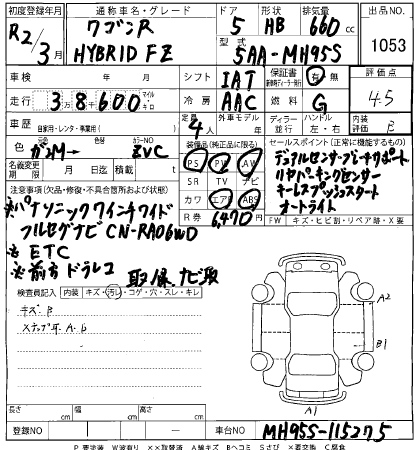 初度登録年月 通称車名・グレード ドア 形状 排気量 出品NO.
R2/3月 ワゴンR HYBRID FZ 5 HB 660cc 1053
型式 5AA-MH95S
車検 年 月 シフト IAT 保証書 有・無 評価点
走行 38600 マイル キロ 冷房 AAC 燃料 G 4.5
車歴 自家用・レンタ・事業用( ) 定員 4人 外車モデル 年 ディーラー 並行 ハンドル 左・右 内装 B
色 ガンM→ 色替 カラーNO ZVC 装備品(純正品に限る) セールスポイント(正常に機能するもの)
名義変更期限 月 日迄 積載 t PS PW AW
SR TV ナビ
カワ エアB ABS
R券 6,470円
デュアルセンサーブレーキサポート
リヤパーキングセンサー
キーレスプッシュスタート
オートライト
注意事項(欠品・修復・不具合箇所および状態)
※パナソニック7インチワイド
フルセグナビ CN-RA06WD
※ETC
※前方ドラレコ
取/保 ナビ取
FW キズ・ヒビ割・リペア跡・X要
検査員記入 内装 キズ・汚レ・コゲ・穴・スレ・キレ
キズ B
ステップ A.b
A2
B1
A1
長さ cm 幅 cm 高さ cm
登録NO 車台NO MH95S-115275
P 要塗装 W波有り ××取替済 A線キズ Bヘコミ Sさび ×要交換 C腐食